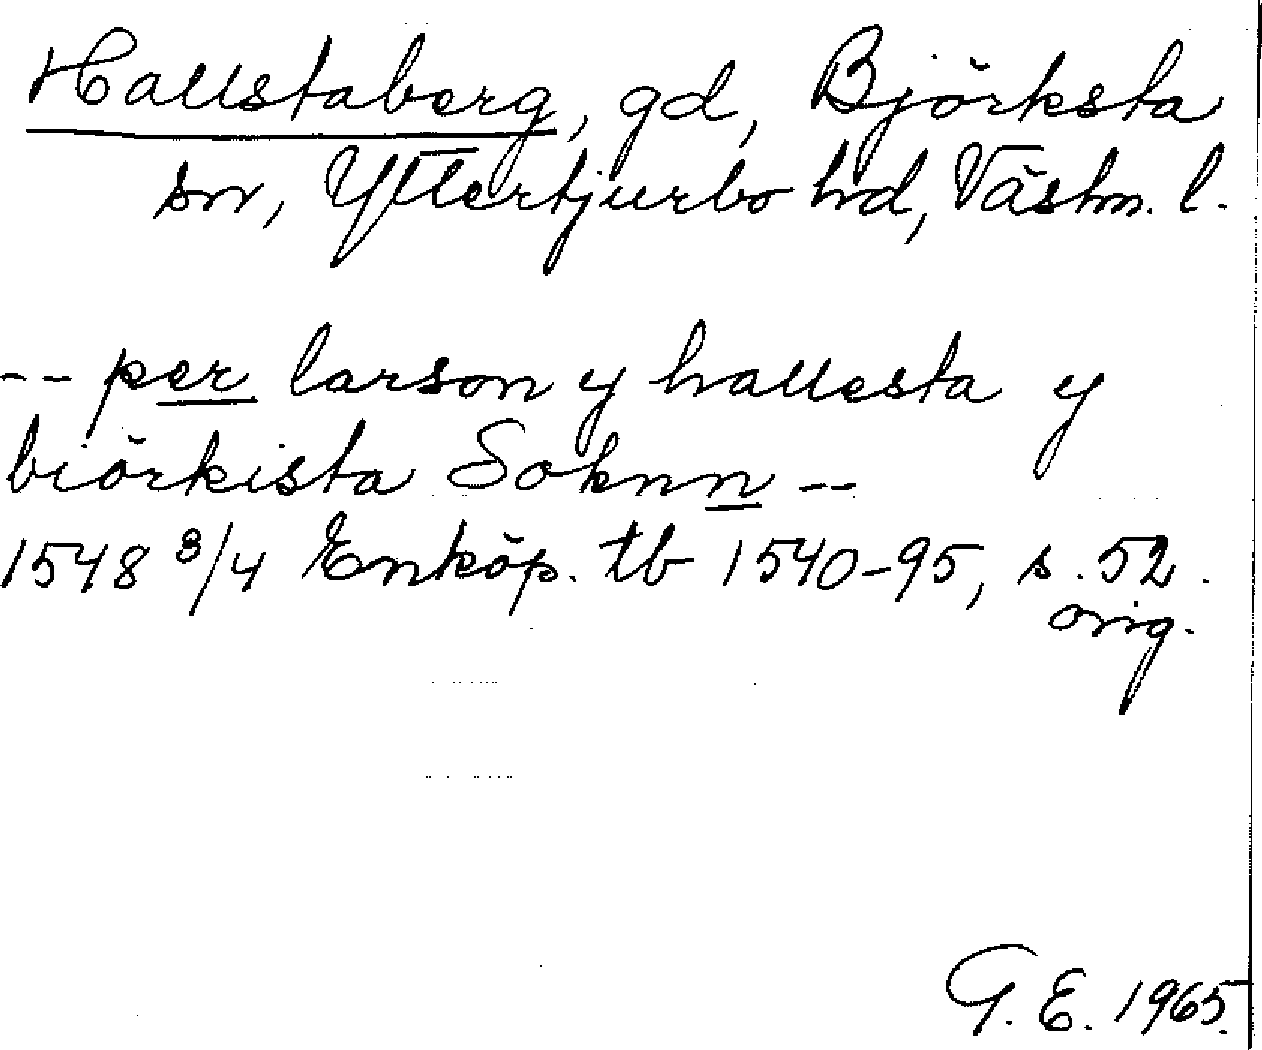 Hallstaberg, gd, Björksta
sn, Yttertjurbo hd, Västm. l.
-- per larson y hallesta y
biörkista Soknn --
1548 3/4 Enköp. tb 1540-95, s. 52.
orig.
G. E. 1965.